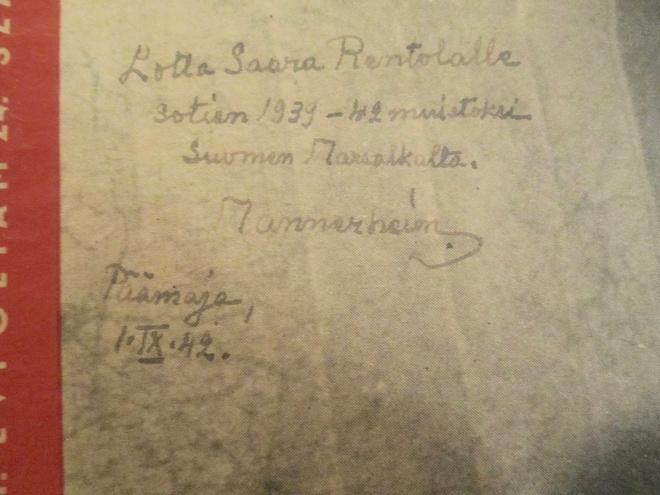 Lotta Saara Rentolalle
sotien 1939-42 muistoksi
Suomen Marsalkalta.
Mannerheim.
Päämaja,
1.IX.42.